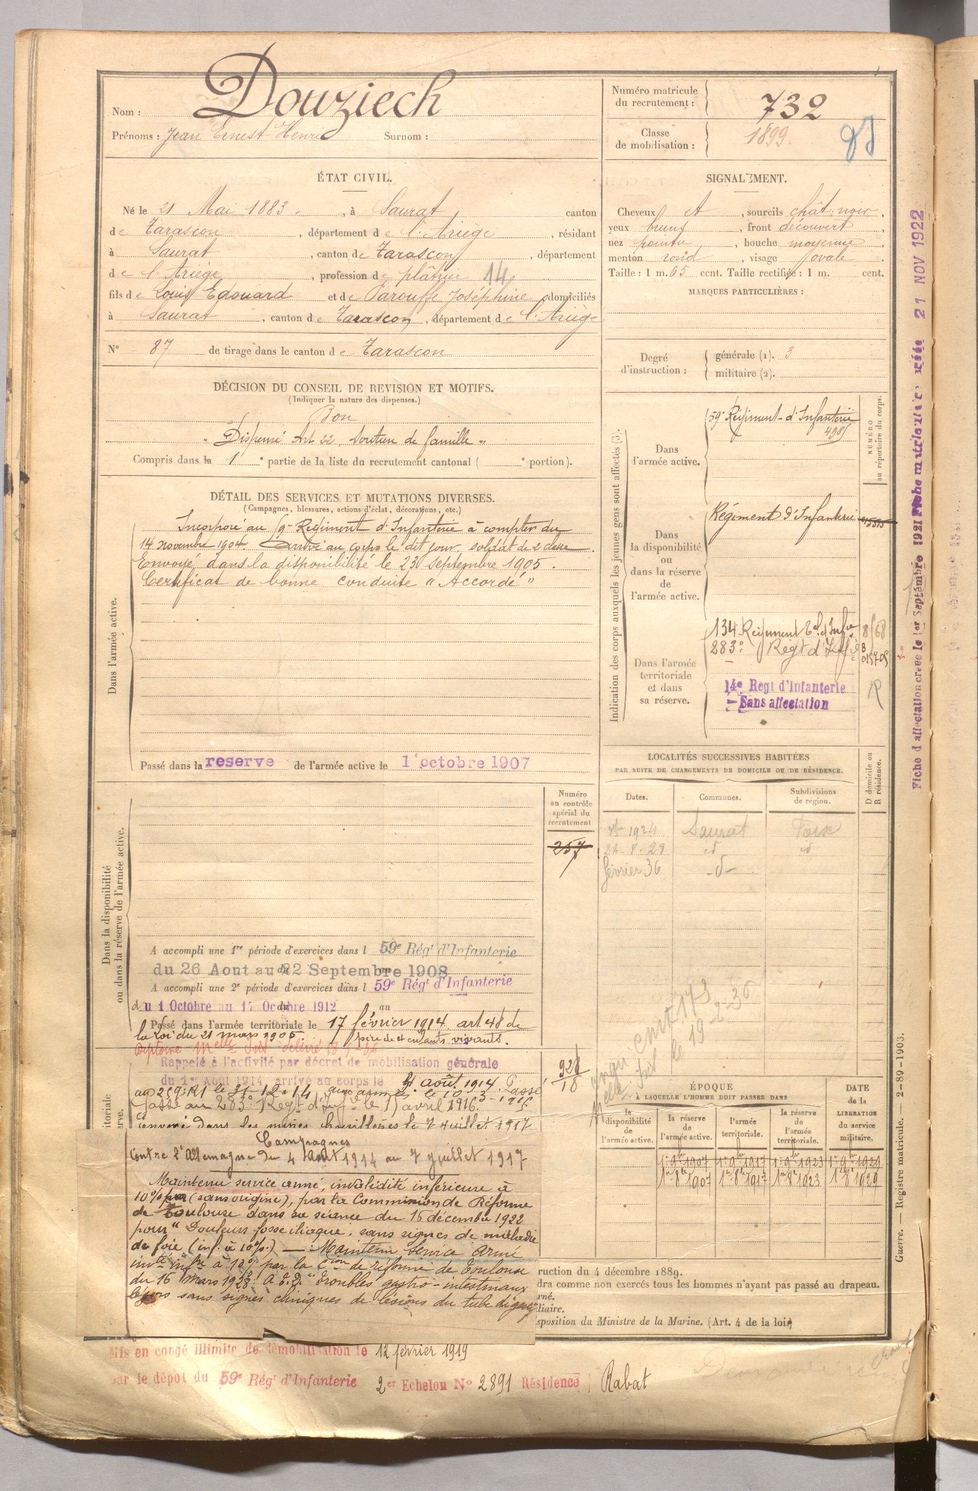 Nom : Douziech
Prénoms : Jean Ernest Henri Surnom :
Numéro matricule du recrutement : 732
Classe de mobilisation : 1899
ÉTAT CIVIL.
Né le 21 Mai 1883. , à Saurat canton
de Tarascon , département de l'Ariège , résidant
à Saurat , canton de Tarascon , département
de l'Ariège , profession de plâtrier 14
fils de Louis Edouard et de Parouffe Joséphine domiciliés
à Saurat , canton de Tarascon , département de l'Ariège
N° 87 de tirage dans le canton de Tarascon
SIGNALEMENT.
Cheveux et , sourcils chât. noir .
yeux , front découvert ,
nez pointu , bouche moyenne ,
menton rond , visage ovale .
Taille : 1 m. 65 cent. Taille rectifiée : 1 m. cent.
MARQUES PARTICULIÈRES :
Degré d'instruction : générale (1). 3
militaire (2).
DÉCISION DU CONSEIL DE REVISION ET MOTIFS.
(Indiquer la nature des dispenses.)
Bon
" Dispensé Art 22. Soutien de famille "
Compris dans la 1 e partie de la liste du recrutement cantonal ( e portion).
DÉTAIL DES SERVICES ET MUTATIONS DIVERSES.
(Campagnes, blessures, actions d'éclat, décorations, etc.)
Dans l'armée active.
Incorporé au 9e Régiment d'Infanterie à compter du
14 novembre 1904. Arrivé au corps le dit jour, soldat de 2e classe.
Envoyé dans la disponibilité le 23 septembre 1905.
Certificat de bonne conduite "Accordé"
Passé dans la réserve de l'armée active le 1 octobre 1907
Indication des corps auxquels les jeunes gens sont affectés (3).
NUMÉRO au répertoire du corps.
Dans l'armée active.
59e Régiment d'Infanterie
Dans la disponibilité ou dans la réserve de l'armée active.
Régiment d'Infanterie
Dans l'armée territoriale et dans sa réserve.
134 Régiment Tal d'Infie
283e Regt d'Infie
14e Regt d'Infanterie
Sans affectation
R
LOCALITÉS SUCCESSIVES HABITÉES
PAR SUITE DE CHANGEMENTS DE DOMICILE OU DE RÉSIDENCE.
Dates. Communes. Subdivisions de région. D domicile ou R résidence.
1924 Saurat Foix
24-8-29 id id
février 36 -d-
Dans la disponibilité ou dans la réserve de l'armée active.
Numéro au contrôle spécial du recrutement
257
A accompli une 1re période d'exercices dans l 59e Régt d'Infanterie
du 26 Aout au 22 Septembre 1908
A accompli une 2e période d'exercices dans l 59e Régt d'Infanterie
du 1 Octobre au 17 Octobre 1912
Passé dans l'armée territoriale le 17 février 1914, art 48 de
la loi du 21 mars 1905. père de 4 enfants vivants.
Rappelé à l'activité par décret de mobilisation générale
du 1er Août 1914, arrivé au corps le 4 août 1914. Passé
au 209e RI le 31-12-14, aux armées le 10-3-1915.
Passé au 283e Regt d'Infie le 17 avril 1916.
Campagnes
Contre l'Allemagne du 4 août 1914 au 7 juillet 1917
Maintenu service armé, invalidité inférieure à
10% (sans origine), par la Commission de Réforme
de Toulouse dans sa séance du 15 décembre 1922
pour "Douleurs fosse iliaque, sans signes de maladie
de foie (inf. à 10%) — Maintenu Service Armé
invté infre à 10% par la Con de réforme de Toulouse
du 16 mars 1923 "Troubles gastro-intestinaux
légers sans signes cliniques de lésions du tube digestif
ÉPOQUE
À LAQUELLE L'HOMME DOIT PASSER DANS
la disponibilité de l'armée active. la réserve de l'armée active. l'armée territoriale. la réserve de l'armée territoriale.
DATE de la LIBÉRATION du service militaire.
1er 9bre 1907 1er 9bre 1917 1er 9bre 1923 1er 9bre 1929
1er 8bre 1907 1er 8bre 1917 1er 8bre 1923 1er 8bre 1929
ruction du 4 décembre 1889.
dra comme non exercés tous les hommes n'ayant pas passé au drapeau.
rné.
liaire.
sposition du Ministre de la Marine. (Art. 4 de la loi)
Mis en congé illimité de démobilisation le 12 février 1919
par le dépôt du 59e Régt d'Infanterie 2er Echelon N° 2891 Résidence Rabat
Guerre. — Registre matricule. — 2-89-1903.
Fiche d'affectation créée le 1er Septembre 1921 Fiche matriculaire créée 21 NOV 1922